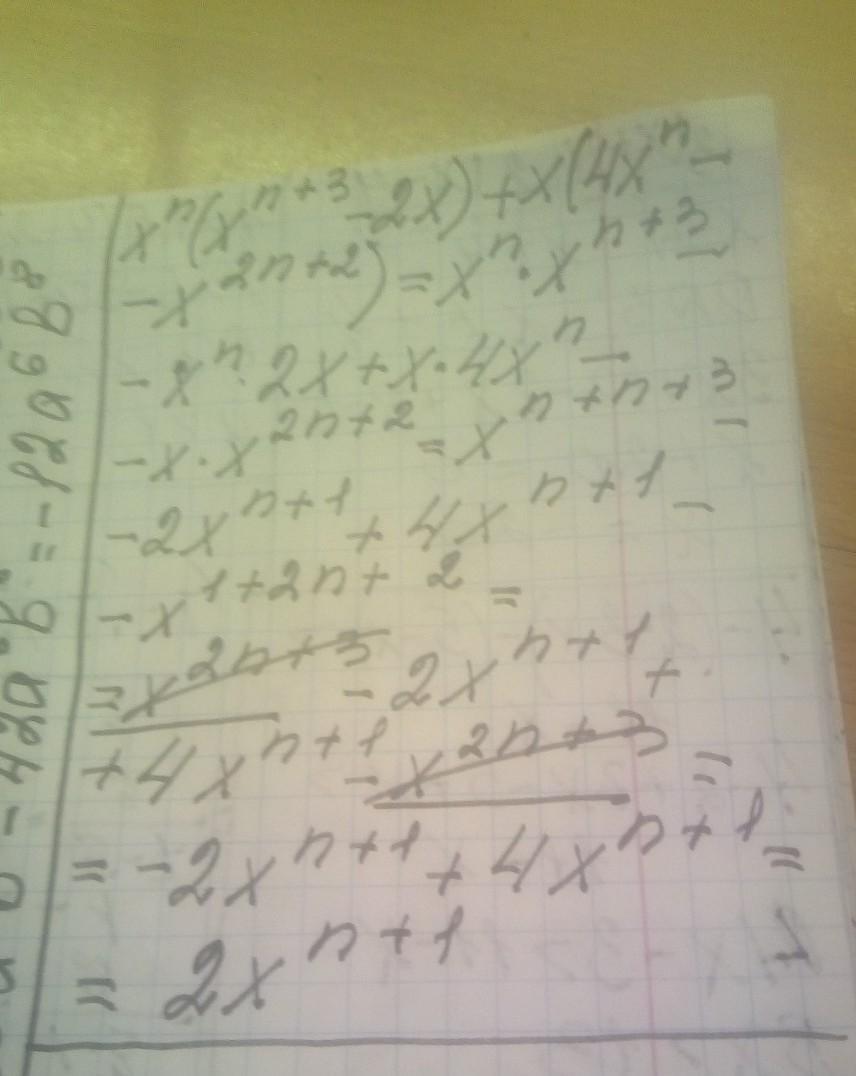 xⁿ(xⁿ⁺³ - 2x) + x(4xⁿ -
- x²ⁿ⁺²) = xⁿ · xⁿ⁺³ -
- xⁿ · 2x + x · 4xⁿ -
- x · x²ⁿ⁺² = xⁿ⁺ⁿ⁺³ -
- 2xⁿ⁺¹ + 4xⁿ⁺¹ -
- x¹⁺²ⁿ⁺² =
= x²ⁿ⁺³ - 2xⁿ⁺¹ +
+ 4xⁿ⁺¹ - x²ⁿ⁺³ =
= -2xⁿ⁺¹ + 4xⁿ⁺¹ =
= 2xⁿ⁺¹
= -12a⁶b⁸